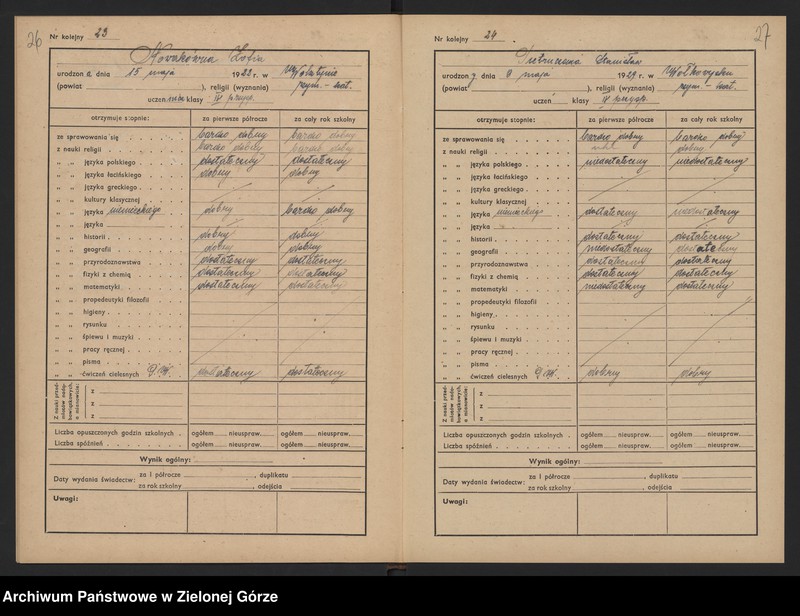 26
Nr kolejny 23
Nowakówna Zofia
urodzona dnia 15 maja 1922 r. w
(powiat ), religii (wyznania) rzym. - kat.
uczennica klasy IV
otrzymuje stopnie: za pierwsze półrocze za cały rok szkolny
ze sprawowania się bardzo dobry bardzo dobry
z nauki religii bardzo dobry bardzo dobry
„ „ języka polskiego dostateczny dostateczny
„ „ języka łacińskiego dobry dobry
„ „ języka greckiego
„ „ kultury klasycznej
„ „ języka niemieckiego dobry bardzo dobry
„ „ języka
„ „ historii dobry dobry
„ „ geografii dobry dobry
„ „ przyrodoznawstwa dostateczny dostateczny
„ „ fizyki z chemią dostateczny dostateczny
„ „ matematyki dostateczny dostateczny
„ „ propedeutyki filozofii
„ „ higieny
„ „ rysunku
„ „ śpiewu i muzyki
„ „ pracy ręcznej
„ „ pisma
„ „ ćwiczeń cielesnych dostateczny dostateczny
Z nauki przedmiotów nadobowiązkowych, a mianowicie:
z
z
z
Liczba opuszczonych godzin szkolnych ogółem nieuspraw. ogółem nieuspraw.
Liczba spóźnień ogółem nieuspraw. ogółem nieuspraw.
Wynik ogólny:
Daty wydania świadectw: za I półrocze , duplikatu
za rok szkolny , odejścia
Uwagi:
27
Nr kolejny 24
Stanisław
urodzony dnia maja r. w Wołkowysku
(powiat ), religii (wyznania) rzym. - kat.
uczeń klasy IV
otrzymuje stopnie: za pierwsze półrocze za cały rok szkolny
ze sprawowania się bardzo dobry bardzo dobry
z nauki religii dobry
„ „ języka polskiego niedostateczny niedostateczny
„ „ języka łacińskiego
„ „ języka greckiego
„ „ kultury klasycznej
„ „ języka niemieckiego dostateczny niedostateczny
„ „ języka
„ „ historii dostateczny dostateczny
„ „ geografii niedostateczny dostateczny
„ „ przyrodoznawstwa dostateczny dostateczny
„ „ fizyki z chemią dostateczny dostateczny
„ „ matematyki niedostateczny dostateczny
„ „ propedeutyki filozofii
„ „ higieny
„ „ rysunku
„ „ śpiewu i muzyki
„ „ pracy ręcznej
„ „ pisma
„ „ ćwiczeń cielesnych dobry dobry
Z nauki przedmiotów nadobowiązkowych, a mianowicie:
z
z
z
Liczba opuszczonych godzin szkolnych ogółem nieuspraw. ogółem nieuspraw.
Liczba spóźnień ogółem nieuspraw. ogółem nieuspraw.
Wynik ogólny:
Daty wydania świadectw: za I półrocze , duplikatu
za rok szkolny , odejścia
Uwagi:
Archiwum Państwowe w Zielonej Górze